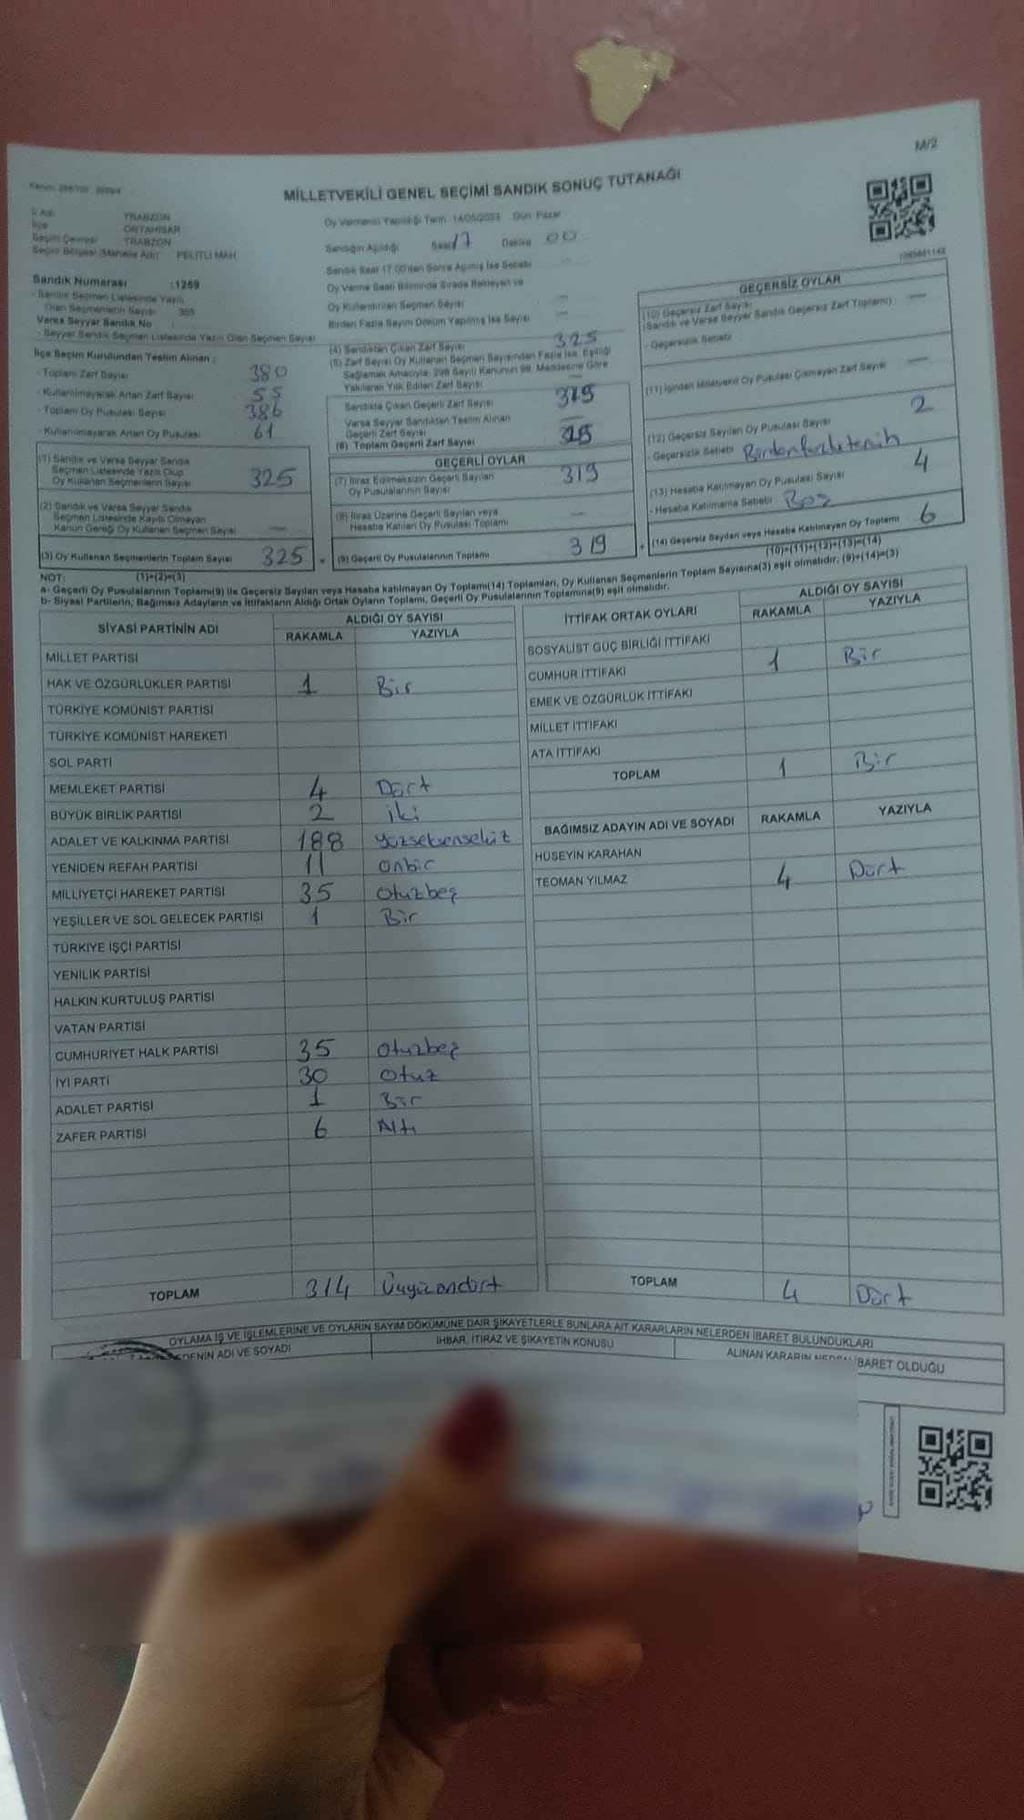 M/2
MİLLETVEKİLİ GENEL SEÇİMİ SANDIK SONUÇ TUTANAĞI
TRABZON
ORTAHİSAR
Seçim Çevresi TRABZON
Seçim Bölgesi (Mahalle Adı): PELİTLİ MAH
Oy Vermenin Yapıldığı Tarih: 14/05/2023 Gün: Pazar
Sandığın Açıldığı Saat 17 Dakika 00
Sandık Saat 17:00'den Sonra Açılmış İse Sebebi
Oy Verme Saati Bitiminde Sırada Bekleyen ve
Oy Kullandırılan Seçmen Sayısı
Birden Fazla Sayım Döküm Yapılmış İse Sayısı
Sandık Numarası :1269
- Sandık Seçmen Listesinde Yazılı
Olan Seçmenlerin Sayısı
Varsa Seyyar Sandık No
- Seyyar Sandık Seçmen Listesinde Yazılı Olan Seçmen Sayısı
İlçe Seçim Kurulundan Teslim Alınan :
- Toplam Zarf Sayısı 380
- Kullanılmayarak Artan Zarf Sayısı 55
- Toplam Oy Pusulası Sayısı 386
- Kullanılmayarak Artan Oy Pusulası 61
(1) Sandık ve Varsa Seyyar Sandık
Seçmen Listesinde Yazılı Olup
Oy Kullanan Seçmenlerin Sayısı 325
(2) Sandık ve Varsa Seyyar Sandık
Seçmen Listesinde Kayıtlı Olmayan
Kanun Gereği Oy Kullanan Seçmen Sayısı —
(3) Oy Kullanan Seçmenlerin Toplam Sayısı 325
(1)+(2)=(3)
(4) Sandıktan Çıkan Zarf Sayısı 325
(5) Zarf Sayısı Oy Kullanan Seçmen Sayısından Fazla İse, Eşitliği
Sağlamak Amacıyla; 298 Sayılı Kanunun 98. Maddesine Göre
Yakılarak Yok Edilen Zarf Sayısı
Sandıkta Çıkan Geçerli Zarf Sayısı 325
Varsa Seyyar Sandıktan Teslim Alınan
Geçerli Zarf Sayısı —
(6) Toplam Geçerli Zarf Sayısı 325
GEÇERLİ OYLAR
(7) İtiraz Edilmeksizin Geçerli Sayılan
Oy Pusulalarının Sayısı 319
(8) İtiraz Üzerine Geçerli Sayılan veya
Hesaba Katılan Oy Pusulası Toplamı —
(9) Geçerli Oy Pusulalarının Toplamı 319
GEÇERSİZ OYLAR
(10) Geçersiz Zarf Sayısı
(Sandık ve Varsa Seyyar Sandık Geçersiz Zarf Toplamı) —
- Geçersizlik Sebebi
(11) İçinden Milletvekili Oy Pusulası Çıkmayan Zarf Sayısı —
(12) Geçersiz Sayılan Oy Pusulası Sayısı 2
- Geçersizlik Sebebi Birden fazla tercih
(13) Hesaba Katılmayan Oy Pusulası Sayısı 4
- Hesaba Katılmama Sebebi Boş
(14) Geçersiz Sayılan veya Hesaba Katılmayan Oy Toplamı 6
(10)+(11)+(12)+(13)=(14)
NOT:
a- Geçerli Oy Pusulalarının Toplamı(9) ile Geçersiz Sayılan veya Hesaba katılmayan Oy Toplamı(14) Toplamları, Oy Kullanan Seçmenlerin Toplam Sayısına(3) eşit olmalıdır. (9)+(14)=(3)
b- Siyasi Partilerin, Bağımsız Adayların ve İttifakların Aldığı Ortak Oyların Toplamı, Geçerli Oy Pusulalarının Toplamına(9) eşit olmalıdır.
SİYASİ PARTİNİN ADI ALDIĞI OY SAYISI
RAKAMLA YAZIYLA
MİLLET PARTİSİ
HAK VE ÖZGÜRLÜKLER PARTİSİ 1 Bir
TÜRKİYE KOMÜNİST PARTİSİ
TÜRKİYE KOMÜNİST HAREKETİ
SOL PARTİ
MEMLEKET PARTİSİ 4 Dört
BÜYÜK BİRLİK PARTİSİ 2 iki
ADALET VE KALKINMA PARTİSİ 188 yüzseksensekiz
YENİDEN REFAH PARTİSİ 11 onbir
MİLLİYETÇİ HAREKET PARTİSİ 35 otuzbeş
YEŞİLLER VE SOL GELECEK PARTİSİ 1 Bir
TÜRKİYE İŞÇİ PARTİSİ
YENİLİK PARTİSİ
HALKIN KURTULUŞ PARTİSİ
VATAN PARTİSİ
CUMHURİYET HALK PARTİSİ 35 otuzbeş
İYİ PARTİ 30 otuz
ADALET PARTİSİ 1 Bir
ZAFER PARTİSİ 6 Altı
TOPLAM 314 Üçyüzondört
İTTİFAK ORTAK OYLARI ALDIĞI OY SAYISI
RAKAMLA YAZIYLA
SOSYALİST GÜÇ BİRLİĞİ İTTİFAKI
CUMHUR İTTİFAKI 1 Bir
EMEK VE ÖZGÜRLÜK İTTİFAKI
MİLLET İTTİFAKI
ATA İTTİFAKI
TOPLAM 1 Bir
BAĞIMSIZ ADAYIN ADI VE SOYADI RAKAMLA YAZIYLA
HÜSEYİN KARAHAN
TEOMAN YILMAZ 4 Dört
TOPLAM 4 Dört
OYLAMA İŞ VE İŞLEMLERİNE VE OYLARIN SAYIM DÖKÜMÜNE DAİR ŞİKAYETLERLE BUNLARA AİT KARARLARIN NELERDEN İBARET BULUNDUKLARI
EDENİN ADI VE SOYADI İHBAR, İTİRAZ VE ŞİKAYETİN KONUSU ALINAN KARARIN NEDEN İBARET OLDUĞU